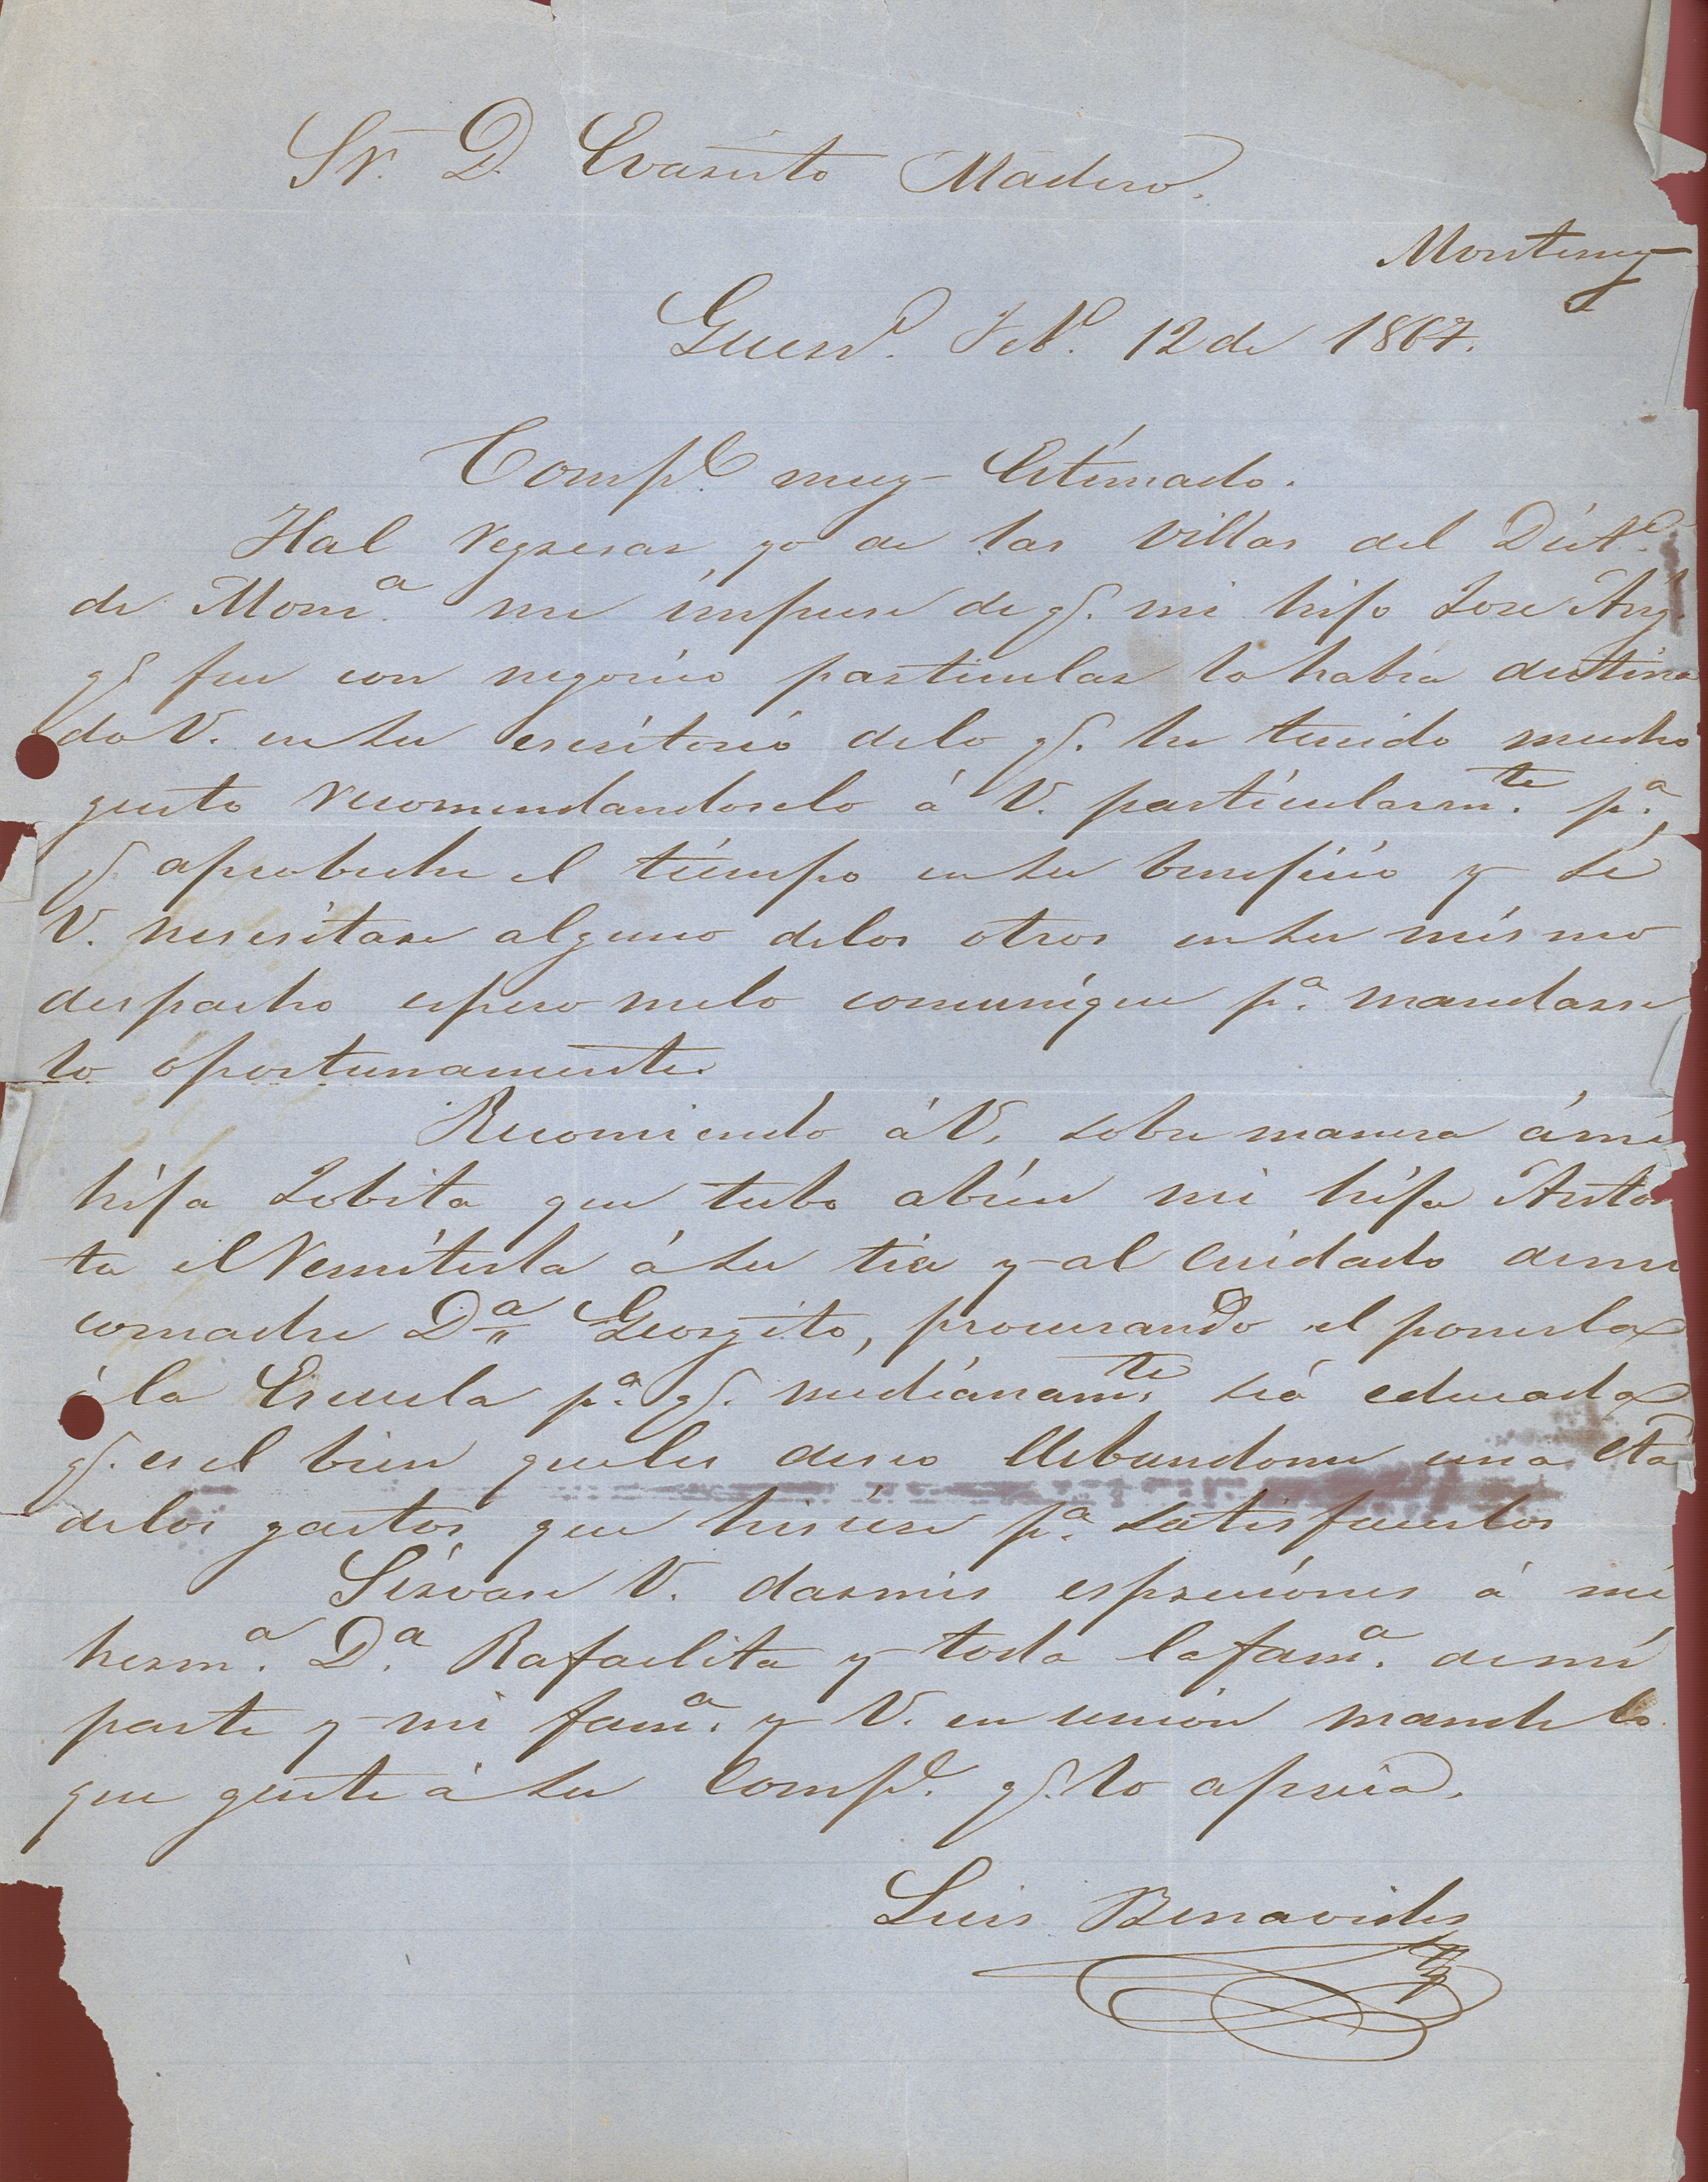 Sr. D. Evaristo Madero.
Monterrey
Guerro. Feb.o 12 de 1867.
Compe. muy Estimado.
Hal regresar yo de las villas del Distº.
de Monc.a me impuse de q. mi hijo Jose Ang.
q. fue con negocio particular lo habia destina
do V. en su escritorio delo q. he tenido mucho
gusto recomendandoselo á V. particularm.te p.a
q. aprobeche el tiempo en su beneficio y si
V. nesesitase alguno delos otros en su mismo
despacho espero melo comunique p.a mandarse
lo oportunamente.
Recomiendo á V. sobre manera ámi
hija Lobita que tubo abien mi hija Anto
ta el remitirla á su tia y al cuidado demi
comadre D.a Georgito, procurando el ponerla
á la Escuela p.a q. medianam.te sea educada
q. es el bien queles deseo llebandome una cta
delos gastos que hisiese p.a satisfacerlos
Sirvase V. darmis espreciones á mi
herm.a D.a Rafaelita y toda la fam.a demi
parte y mi fam.a y V. en union mande lo
que guste á su Compe. q. lo aprecia.
Luis Benavides